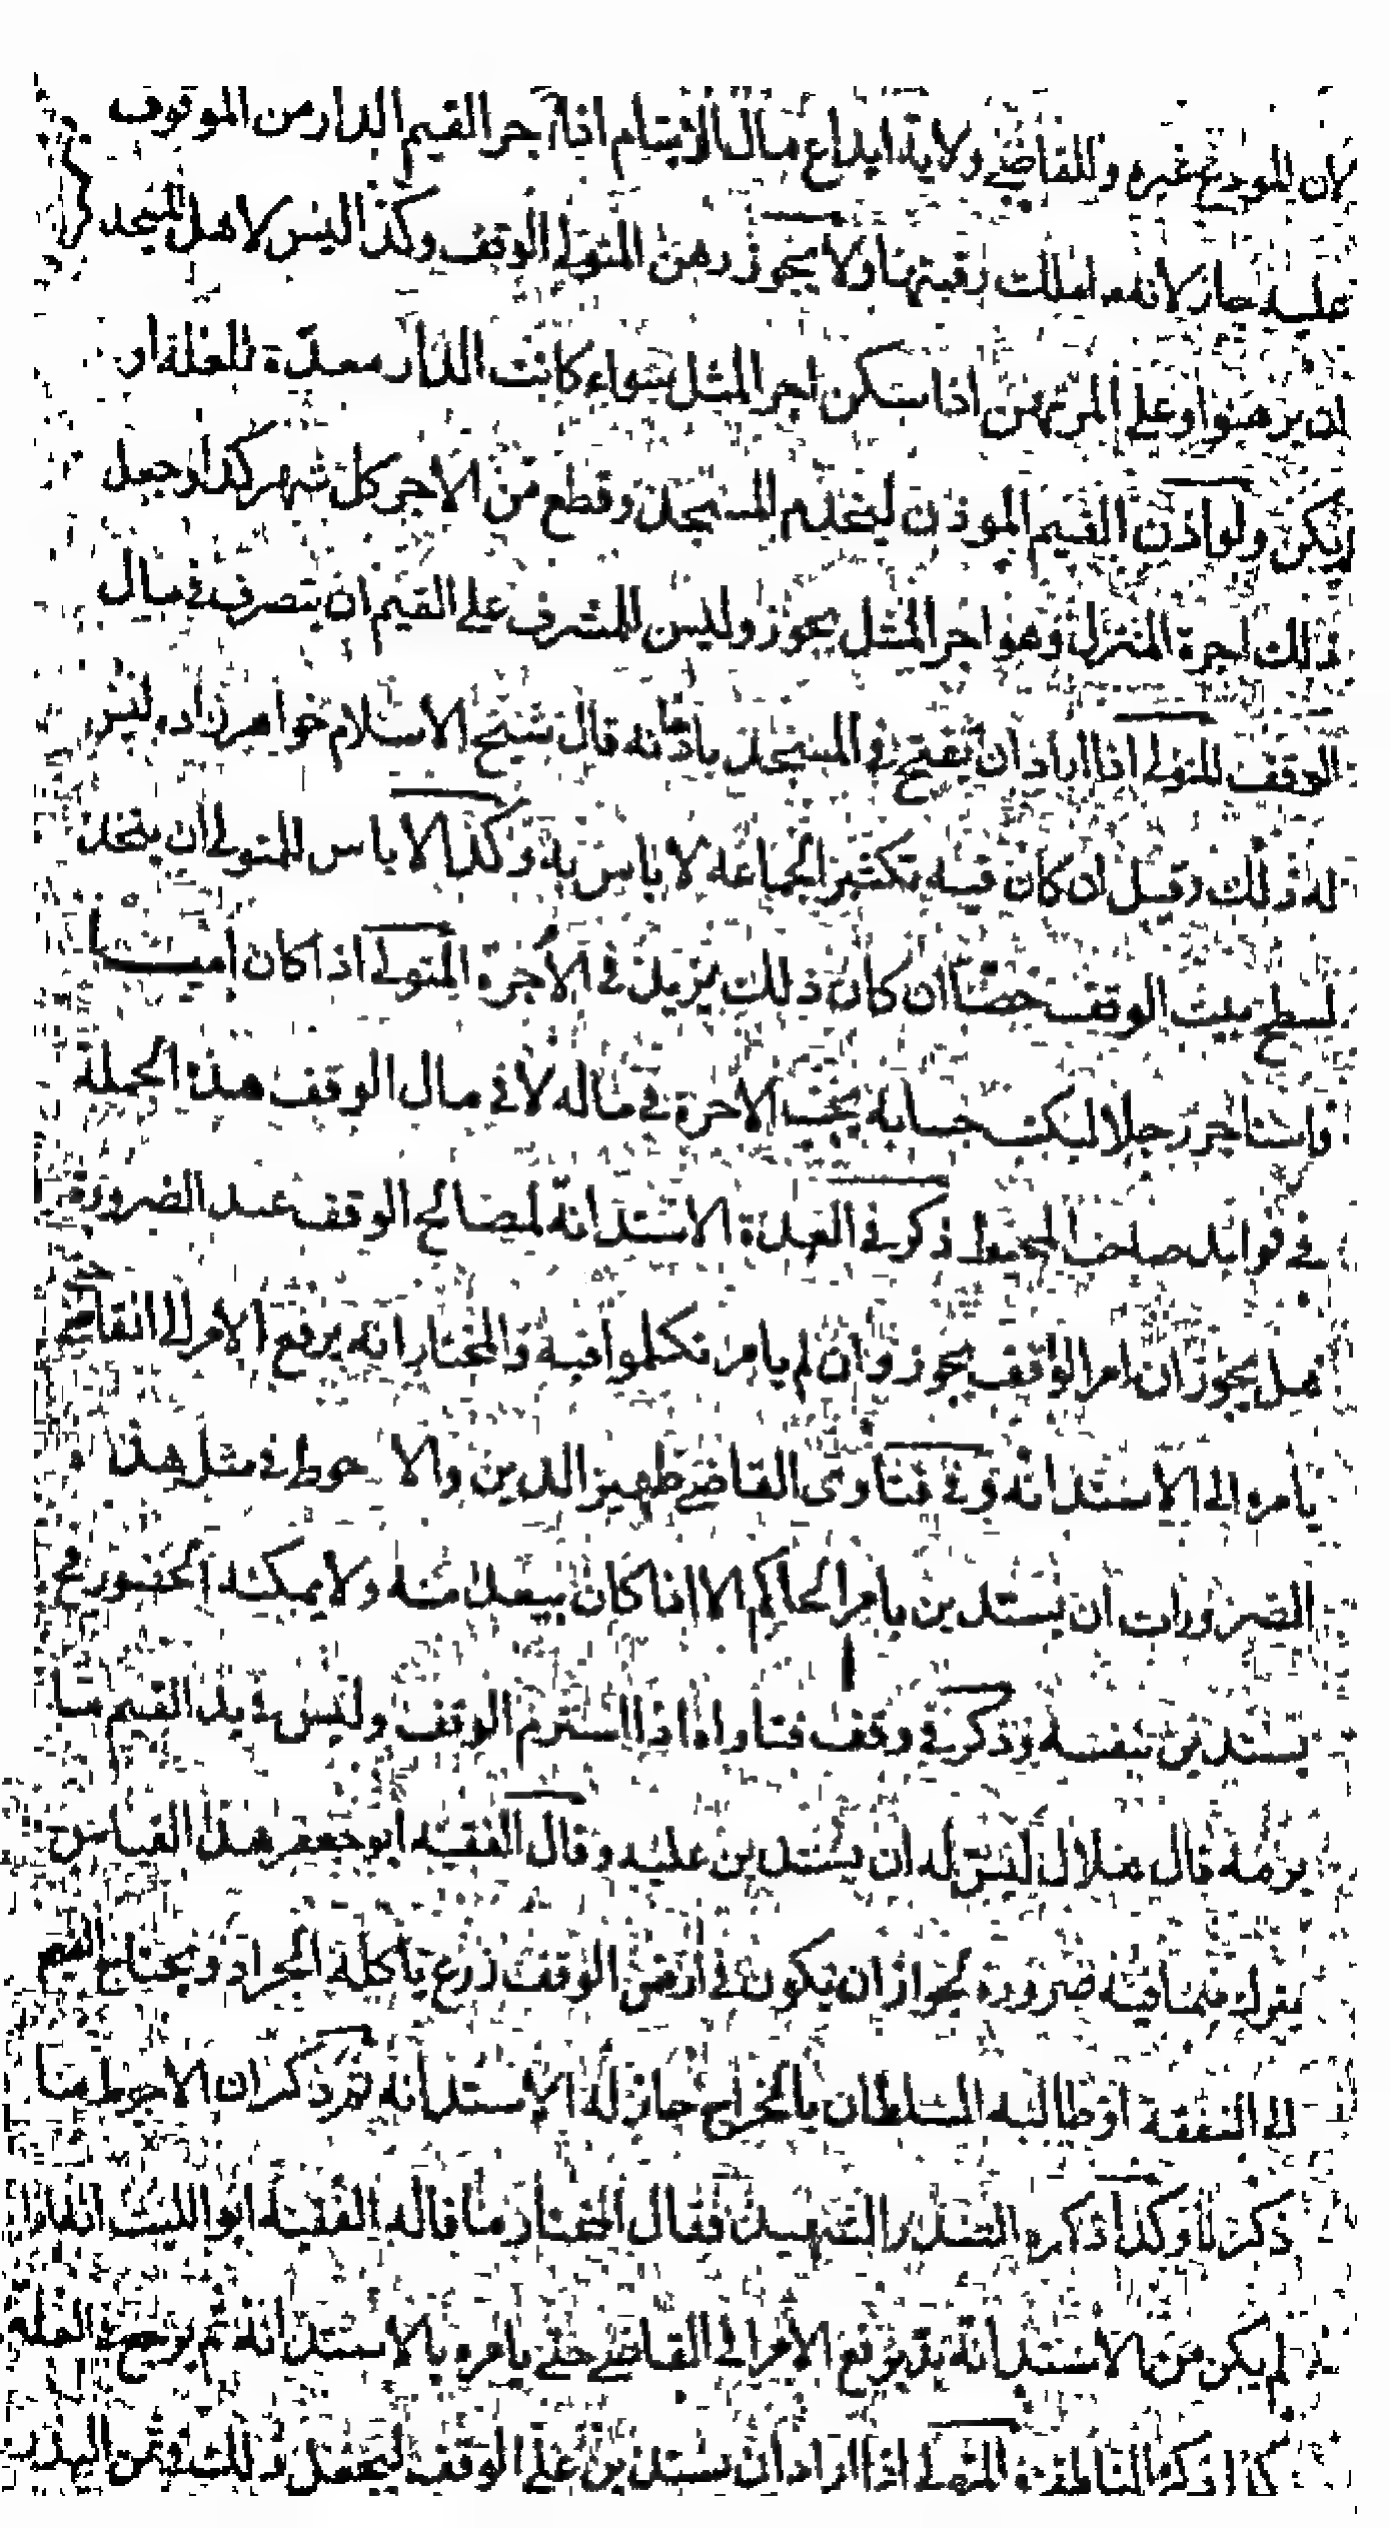 لان للمودع غيره وللقاضي ولاية ايداع مال الايتام اذا اجر القيم الدار من الموقوف
عليه جاز لانه لا يملك رقبتها ولا يجوز رهن المتولي الوقف وكذا ليس لاهل المسجد
ان يرهنوا وعلى المرتهن اذا سكن اجر المثل سواء كانت الدار معدة للغلة او
لم تكن ولو اذن القيم الموذن ليخدم المسجد وقطع من الاجر كل شهر كذا وجعل
ذلك اجرة المنزل وهو اجر المثل يجوز وليس للمشرف على القيم ان يتصرف في مال
الوقف للمتولي اذا اراد ان يفتح في المسجد بابا قال شيخ الاسلام خواهرزاده ليس
له ذلك وقيل ان كان فيه تكثير الجماعة لا باس به وكذا لا باس للمتولي ان يتخذ
لسطح بيت الوقف خصا ان كان ذلك يزيد في الاجرة المتولي اذا كان اميا
فاستاجر رجلا ليكتب حسابه يجب الاجرة في ماله لا في مال الوقف هذا الجملة
في فوايد صاحب المحيط ذكر في العدة الاستدانة لمصالح الوقف عند الضرورة
هل يجوز ان امر الواقف يجوز وان لم يامر تكلموا فيه والمختار انه يرفع الامر الى القاضي
يامره الى الاستدانة وفي فتاوى القاضي ظهير الدين والاحوط في مثل هذا
الضرورات ان يستدين بامر الحاكم الا اذا كان يبعد منه ولا يمكنه الحضور مح
يستدين بنفسه وذكر في وقف فتاواه اذا استرم الوقف وليس في يد القيم ما
يرمه قال هلال ليس له ان يستدين عليه وقال الفقيه ابو جعفر هذا القياس
يترك فيما فيه ضرورة نحو ان يكون في ارض الوقف زرع ياكله الجراد ويحتاج القيم
الى النفقة او طالبه السلطان بالخراج جاز له الاستدانة ثم ذكر ان الاحوط ما
ذكرنا وكذا ذكره الصدر الشهيد فقال المختار ما قاله الفقيه ابو الليث انه اذا
لم يكن من الاستدانة بد يرفع الامر الى القاضي حتى يامره بالاستدانة ثم يرجع في الغلة
كذا ذكره الناطفي المتولي اذا اراد ان يستدين على الوقف ليجعل ذلك في ثمن البذر